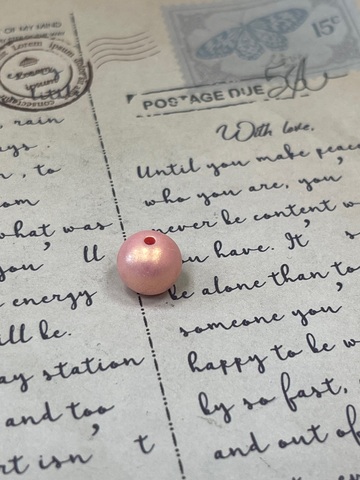 OF MY MIND
Lorem ipsum
15¢
POSTAGE DUE
With love.
rain
ys.
, to
om
what was
you' ll
energy
ill be.
ay station
and too
rt isn' t
Until you make peace
who you are, you'
never be content w
ou have. It' s
be alone than to
someone you'
happy to be w
by so fast,
and out of